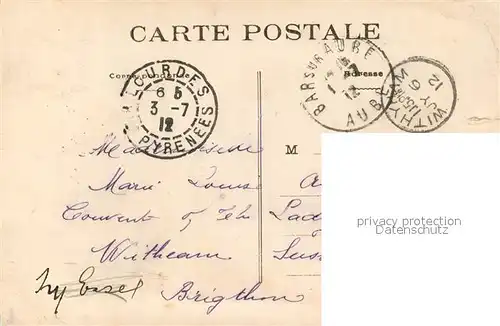 CARTE POSTALE
Correspondance
Adresse
LOURDES
6 5
3 - 7
12
PYRENEES
BAR SUR AUBE
12
AUBE
WITHYHAM
12
M
Mademoiselle
Marie Louise
Convent of The Lad
Witheam Suss
by Essel Brigthon
privacy protection
Datenschutz